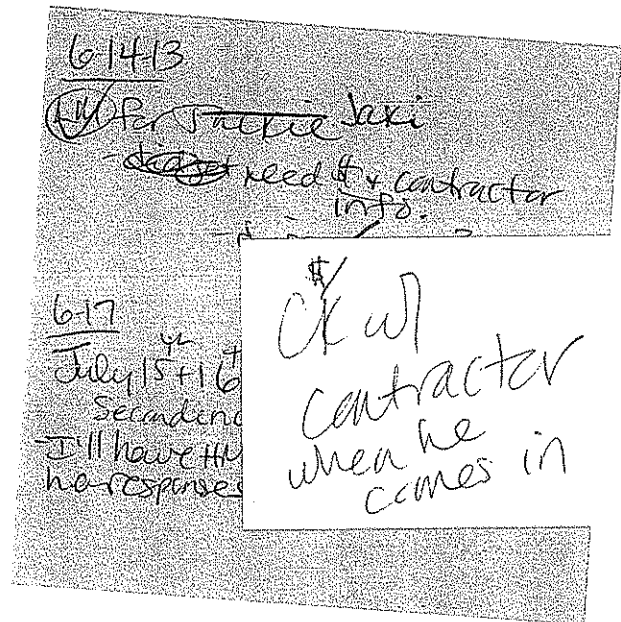 6-14-13
LM for Jackie Jaki
need $ + contractor
info.
6-17
July 15th + 16
I'll have HM
no responses
$/
CK w/
contractor
when he
comes in